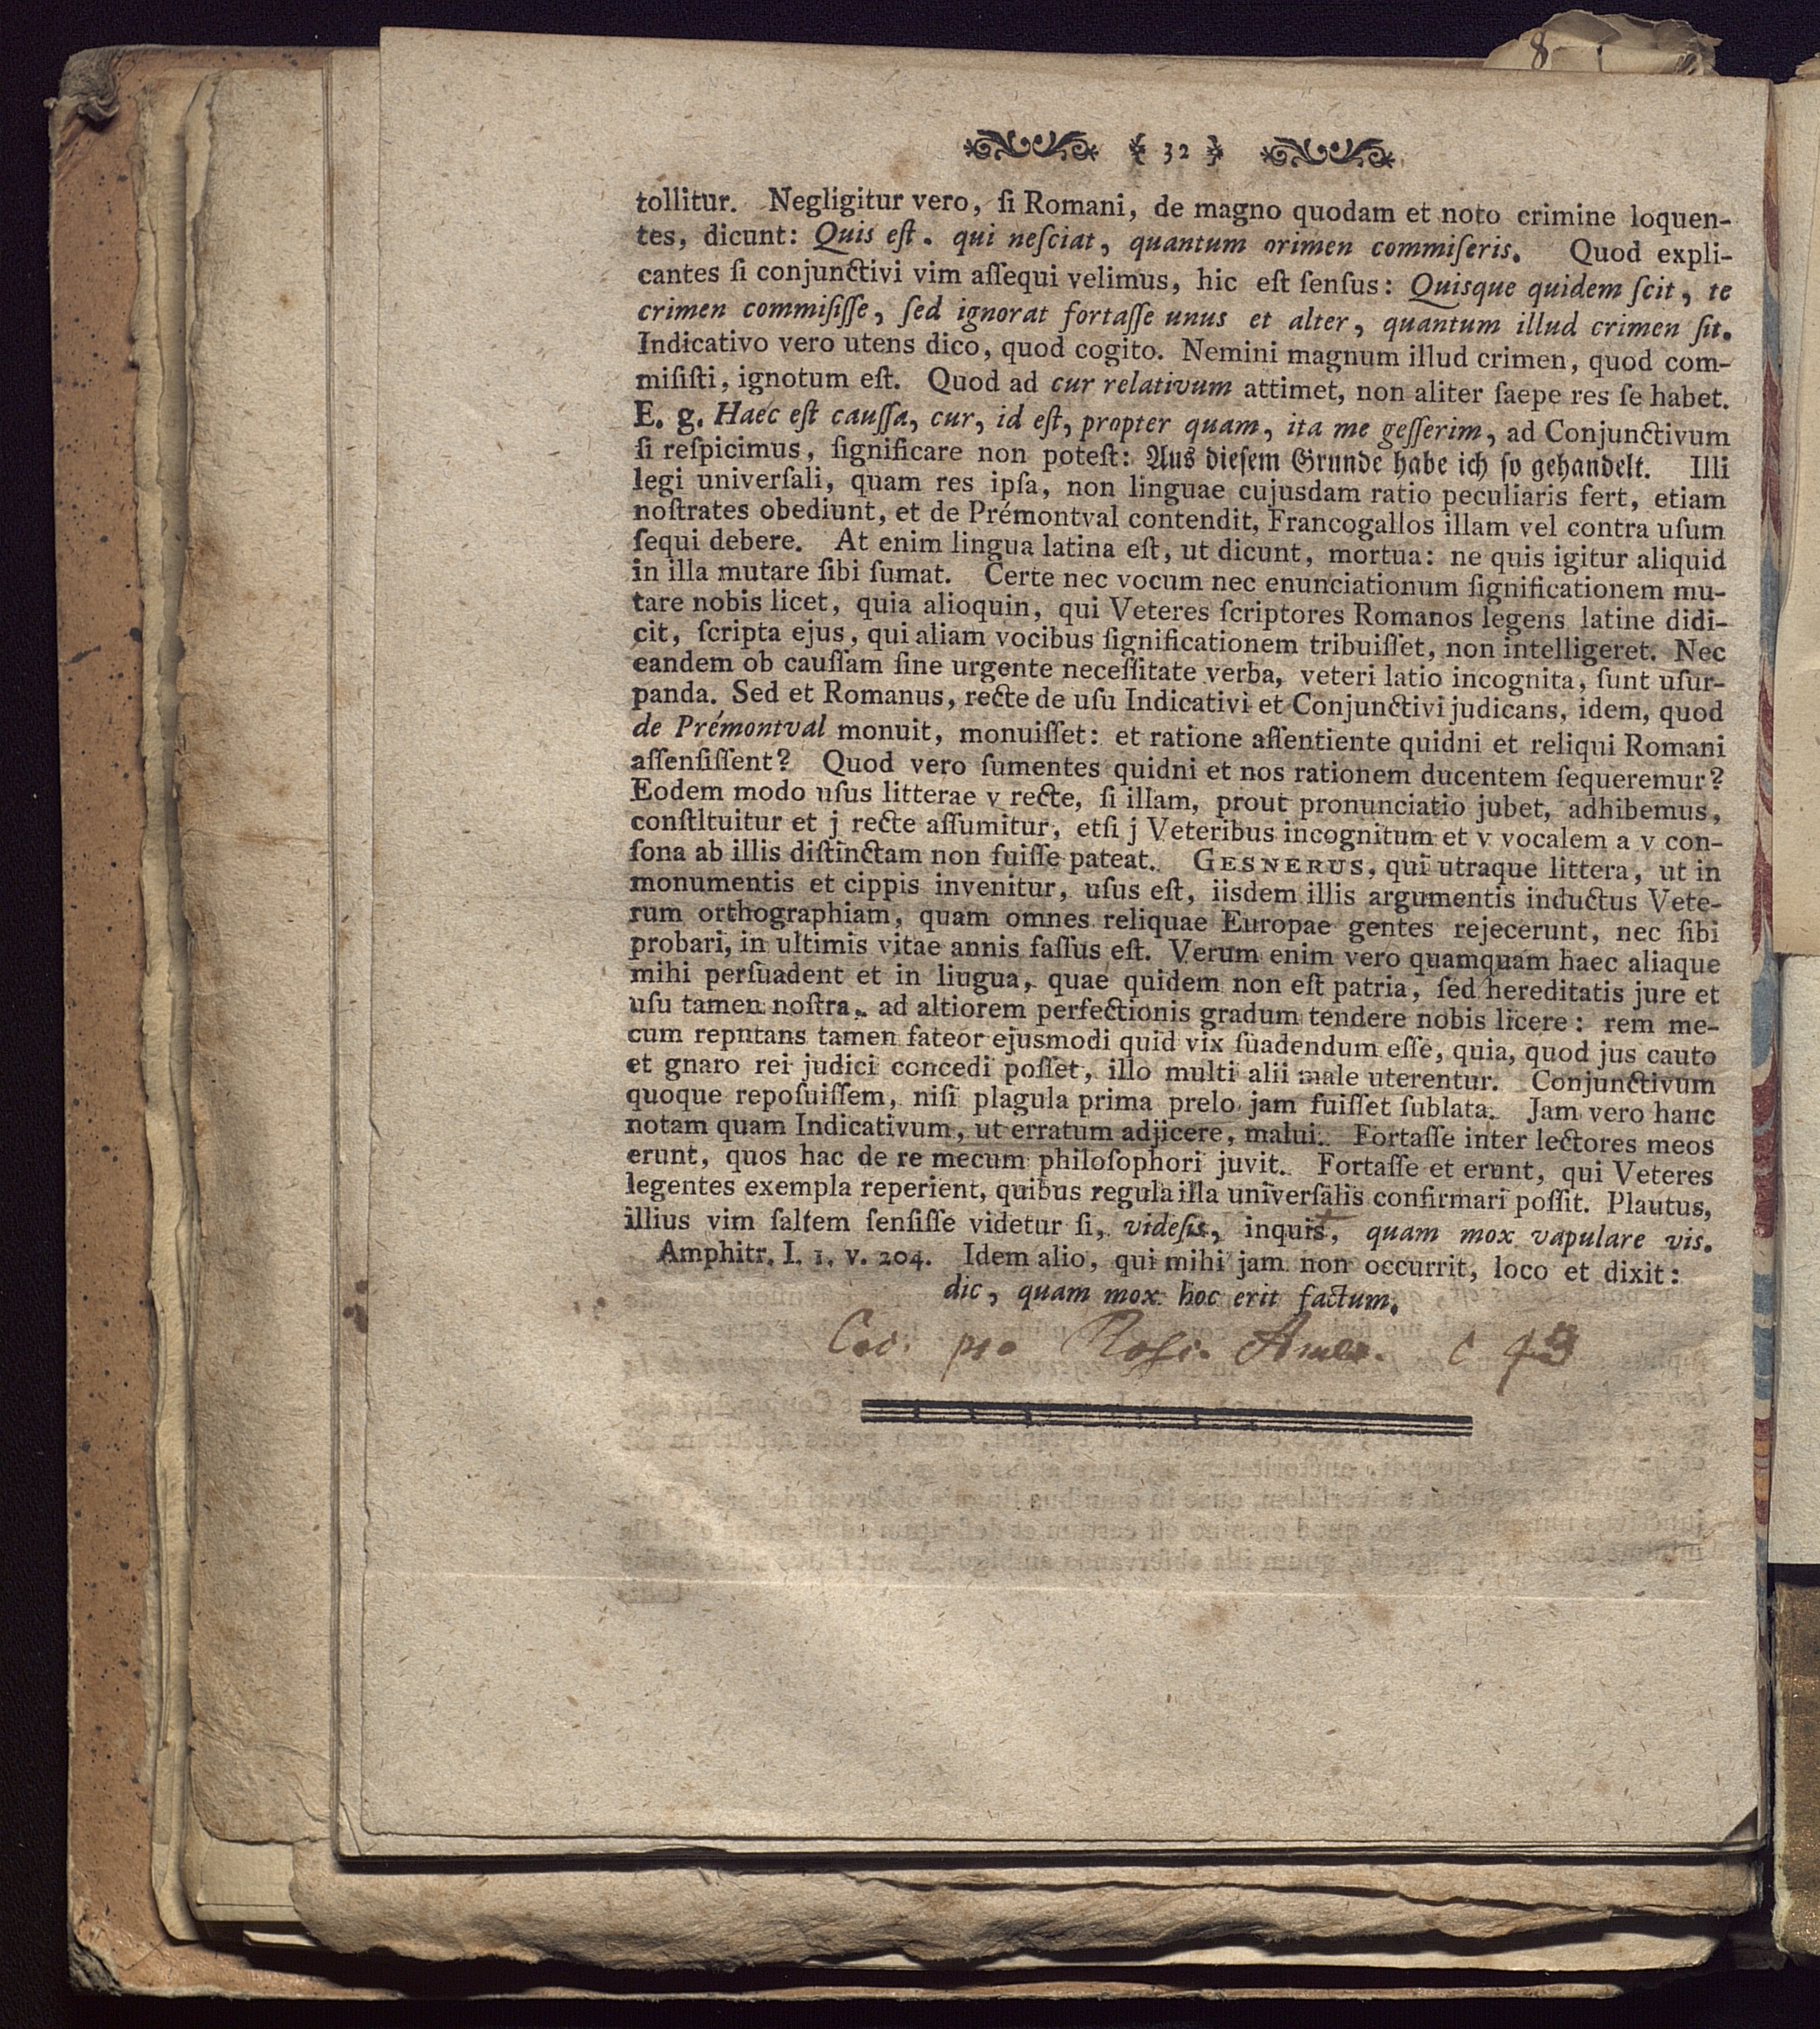 8
32
tollitur. Negligitur vero, ſi Romani, de magno quodam et noto crimine loquen-
tes, dicunt: Quis eſt. qui neſciat, quantum orimen commiſeris. Quod expli-
cantes ſi conjunctivi vim aſſequi velimus, hic eſt ſenſus: Quisque quidem ſcit, te
crimen commiſiſſe, ſed ignorat fortaſſe unus et alter, quantum illud crimen ſit.
Indicativo vero utens dico, quod cogito. Nemini magnum illud crimen, quod com-
miſiſti, ignotum eſt. Quod ad cur relativum attimet, non aliter ſaepe res ſe habet.
E. g. Haec eſt cauſſa, cur, id eſt, propter quam, ita me geſſerim, ad Conjunctivum
ſi reſpicimus, ſignificare non poteſt: Aus dieſem Grunde habe ich ſo gehandelt. Illi
legi univerſali, quam res ipſa, non linguae cujusdam ratio peculiaris fert, etiam
noſtrates obediunt, et de Prémontval contendit, Francogallos illam vel contra uſum
ſequi debere. At enim lingua latina eſt, ut dicunt, mortua: ne quis igitur aliquid
in illa mutare ſibi ſumat. Certe nec vocum nec enunciationum ſignificationem mu-
tare nobis licet, quia alioquin, qui Veteres ſcriptores Romanos legens latine didi-
cit, ſcripta ejus, qui aliam vocibus ſignificationem tribuiſſet, non intelligeret. Nec
eandem ob cauſſam ſine urgente neceſſitate verba, veteri latio incognita, ſunt uſur-
panda. Sed et Romanus, recte de uſu Indicativi et Conjunctivi judicans, idem, quod
de Prémontval monuit, monuiſſet: et ratione aſſentiente quidni et reliqui Romani
aſſenſiſſent? Quod vero ſumentes quidni et nos rationem ducentem ſequeremur?
Eodem modo uſus litterae v recte, ſi illam, prout pronunciatio jubet, adhibemus,
conſtituitur et j recte aſſumitur, etſi j Veteribus incognitum et v vocalem a v con-
ſona ab illis diſtinctam non fuiſſe pateat. GESNERUS, qui utraque littera, ut in
monumentis et cippis invenitur, uſus eſt, iisdem illis argumentis inductus Vete-
rum orthographiam, quam omnes reliquae Europae gentes rejecerunt, nec ſibi
probari, in ultimis vitae annis faſſus eſt. Verum enim vero quamquam haec aliaque
mihi perſuadent et in liugua, quae quidem non eſt patria, ſed hereditatis jure et
uſu tamen noſtra, ad altiorem perfectionis gradum tendere nobis licere: rem me-
cum reputans tamen fateor ejusmodi quid vix ſuadendum eſſe, quia, quod jus cauto
et gnaro rei judici concedi poſſet, illo multi alii male uterentur. Conjunctivum
quoque repoſuiſſem, niſi plagula prima prelo jam fuiſſet ſublata. Jam vero hanc
notam quam Indicativum, ut erratum adjicere, malui. Fortaſſe inter lectores meos
erunt, quos hac de re mecum philoſophori juvit. Fortaſſe et erunt, qui Veteres
legentes exempla reperient, quibus regula illa univerſalis confirmari poſſit. Plautus,
illius vim ſaltem ſenſiſſe videtur ſi, videſis, inquit, quam mox vapulare vis.
Amphitr. I. 1. v. 204. Idem alio, qui mihi jam non occurrit, loco et dixit:
dic, quam mox hoc erit factum.
pro Rosc. Amer. c